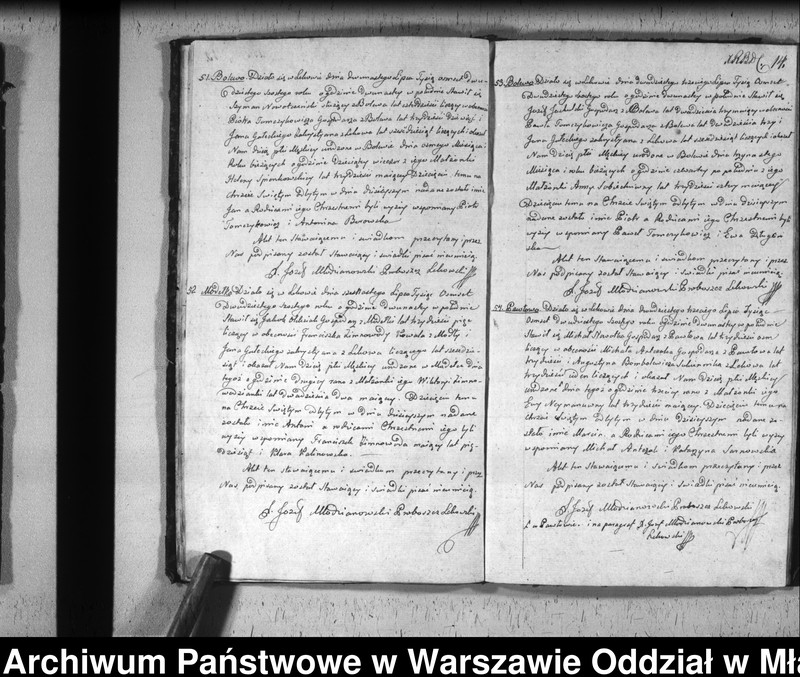 51. Bolewo Działo się w Lekowie dnia dwunastego Lipca Tysiąc osmset dwu-
dziestego szostego roku o godzinie dwunastey w południe Stawił się
Szyman służący z Bolewa lat liczący w obecności
Piotra Tomczykowicza Gospodarza z Bolewa lat trzydzieści i
Jana Gałeckiego zakrystyana z Lekowa lat liczących i okazał
Nam dziecię płci Męzkiey urodzone w Bolewie dnia osmego Miesiąca i
Roku bieżących o godzinie dziesiątey wieczor z iego Małżonki
Heleny lat trzydzieści maiącey Dziecięciu temu na
Chrzcie Swiętym odbytym w dniu dzisieyszym nadane zostało imie
Jan a Rodzicami iego Chrzestnemi byli wyżey wspomniany Piotr
Tomczykowicz i Antonina
Akt ten stawaiącemu i swiadkom przeczytany i przez
Nas podpisany został Stawaiący i swiadki pisać nieumieią.
X. Jozef Młodzianowski Proboszcz Lekowski
52. Modełka Działo się w Lekowie dnia szesnastego Lipca Tysiąc Osmset
Dwudziestego szostego roku o godzinie dwunastey w południe
Stawił się Jakub Gospodarz z Modełki lat trzydzieści pięć
liczący w obecności Franciszka Kowala z Modły i
Jana Gałeckiego zakrystyana z Lekowa liczącego lat sześćdzie-
siąt i okazał Nam dziecię płci Męzkiey urodzone w Modełce dnia
tegoż o godzinie drugiey z rana z Małżonki iego Wiktoryi
lat dwadzieścia dwa maiącey. Dziecięciu temu
na Chrzcie Swiętym odbytym w dniu dzisieyszym nadane
zostało imie Antoni a rodzicami Chrzestnemi iego byli
wyżey wspomniany Franciszek maiący lat pię-
dziesiąt i
Akt ten stawaiącemu i swiadkom przeczytany i przez
Nas podpisany został Stawaiący i swiadki pisać nieumieią.
X. Jozef Młodzianowski Proboszcz Lekowski
14.
53. Bolewo Działo się w Lekowie dnia dwudziestego trzeciego Lipca Tysiąc Osmset
Dwudziestego szostego roku o godzinie dwunastey w południe Stawił się
Jozef Gospodarz z Bolewa lat dwadzieścia trzy maiący w obecności
Pawła Tomczykowicza Gospodarza z Bolewa lat dwadzieścia trzy i
Jana Gałeckiego zakrystyana z Lekowa lat sześćdziesiąt liczących i okazał
Nam dziecię płci Męzkiey urodzone w Bolewie dnia
Miesiąca i roku bieżących o godzinie czwartey po południu z iego
Małżonki Anny lat trzydzieści cztery maiącey
Dziecięciu temu na Chrzcie Swiętym odbytym w dniu dzisieyszym
nadane zostało imie Piotr a Rodzicami iego Chrzestnemi byli
wyżey wspomniany Paweł Tomczykowicz i Ewa
ska
Akt ten Stawaiącemu i swiadkom przeczytany i przez
Nas podpisany został Stawaiący i swiadki pisać nieumieią.
X. Jozef Młodzianowski Proboszcz Lekowski
54. Pawłowo Działo się w Lekowie dnia dwudziestego trzeciego Lipca Tysiąc
osmset Dwudziestego szostego roku o godzinie dwunastey w południe
Stawił się Michał Gospodarz z Pawłowa lat trzydzieści osm
liczący w obecności Michała Gospodarza z Pawłowa lat
trzydzieści i Augustyna z Lekowa lat
trzydzieści liczących i okazał Nam dziecię płci Męzkiey
urodzone dnia tegoż o godzinie trzeciey z rana z Małżonki iego
Ewy lat trzydzieści maiącey. Dziecięciu temu na
chrzcie Swiętym odbytym w dniu dzisieyszym nadane zo-
stało imie Marcin a Rodzicami iego Chrzestnemi byli wyżey
wspomniany Michał i Katarzyna
Akt ten Stawaiącemu i swiadkom przeczytany i przez
Nas podpisany został Stawaiący i swiadki pisać nieumieią.
X. Jozef Młodzianowski Proboszcz Lekowski
X. Jozef Młodzianowski Proboszcz
Lekowski
Archiwum Państwowe w Warszawie Oddział w Mła